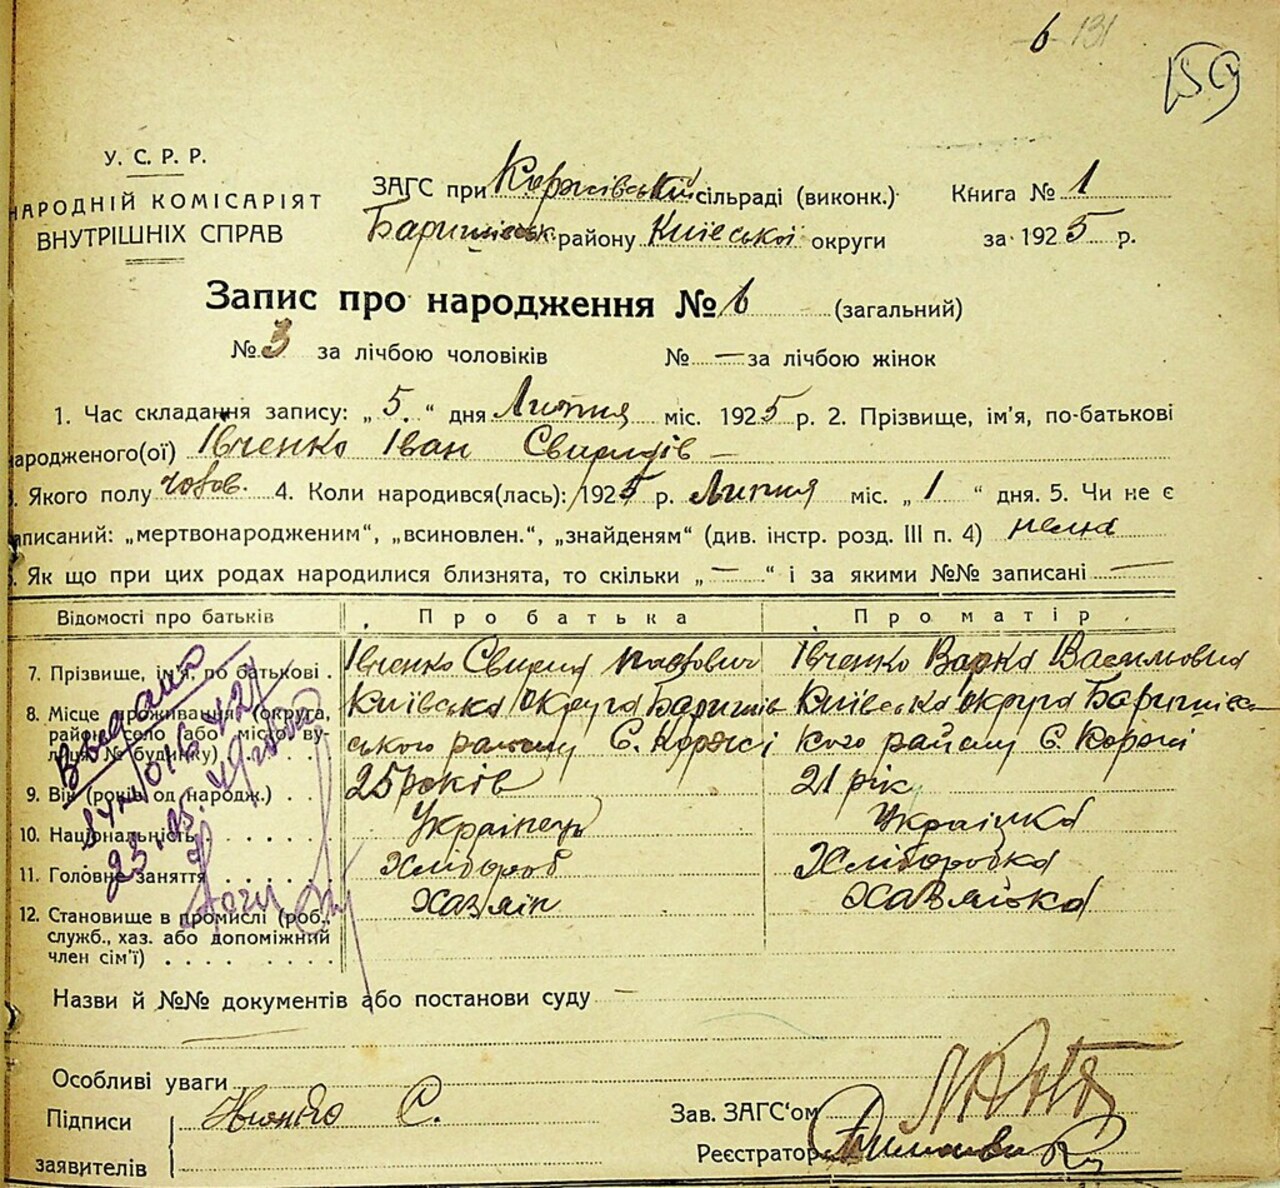 6 131
159
У. С. Р. Р.
НАРОДНІЙ КОМІСАРІЯТ
ВНУТРІШНІХ СПРАВ
ЗАГС при Коржівській сільраді (виконк.) Книга № 1
Баришівськ. району Київської округи за 1925 р.
Запис про народження № 6 (загальний)
№ 3 за лічбою чоловіків № — за лічбою жінок
1. Час складання запису: „ 5. “ дня Липня міс. 1925 р. 2. Прізвище, ім'я, по-батькові
ародженого(ої) Івченко Іван Свиридів —
. Якого полу чолов. 4. Коли народився(лась): 1925 р. Липня міс. „ 1 “ дня. 5. Чи не є
аписаний: „мертвонародженим“, „всиновлен.“, „знайденям“ (див. інстр. розд. III п. 4) нема
. Як що при цих родах народилися близнята, то скільки „ — “ і за якими №№ записані —
Відомості про батьків Про батька Про матір
7. Прізвище, ім'я, по батькові . Івченко Свирид Івченко Варка Васильовна
8. Місце проживання (округа, Київська округа Баришів Київська округа Баришівсь
район, село (або місто) ву- ського району С. Коржі кого району С. Коржі
лиця № будинку)
9. Вік (років од народж.) . . 25 років 21 рік
10. Національність Українець Українка
11. Головне заняття . . . . . . Хлібороб Хліборобка
12. Становище в промислі (роб., Хазяін Хазяйка
служб., хаз. або допоміжний
член сім'ї) . . . . . . . .
Назви й №№ документів або постанови суду —
Особливі уваги
Підписи С. Зав. ЗАГС'ом
заявителів Реєстратор